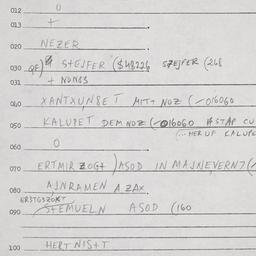 012 0
013 +
020 NEZER
030 STEJFER ($48226 SZEJFER (268
031 + NONES
040 XANTXUNSET MIT+ NOZ (-016060
050 KALUPET DEM NOZ (-016060 # STAP CU
(...HER UF KALUPE
060 0
070 ERTMIR ZOGT) ASOD IN MAJNEVERNZ(-
080 AJNRAMEN A ZAX
090 STEMUELN ASOD (160
100 HERT NIST T